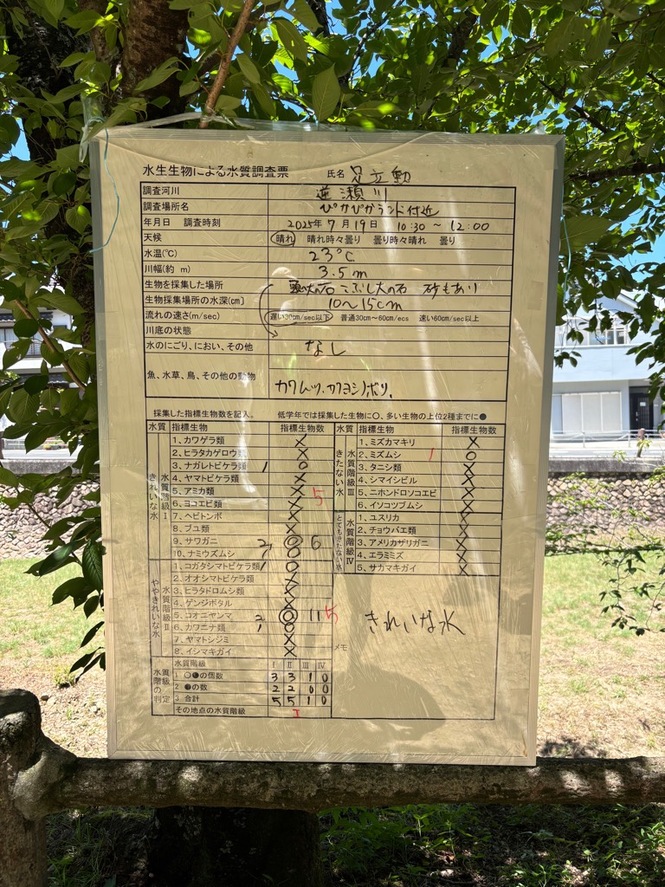 水生生物による水質調査票 氏名 足立勲
調査河川 逆瀬川
調査場所名 ぴかぴかランド付近
年月日 調査時刻 2025年7月19日 10:30～12:00
天候 晴れ 晴れ時々曇り 曇り時々晴れ 曇り
水温(℃) 23℃
川幅(約 m) 3.5m
生物を採集した場所 こぶし大の石 砂もあり
生物採集場所の水深(cm) 10～15cm
流れの速さ(m/sec) 遅い30cm/sec以下 普通30cm～60cm/ecs 速い60cm/sec以上
川底の状態
水のにごり、におい、その他 なし
魚、水草、鳥、その他の動物 カワムツ、カワヨシノボリ。
採集した指標生物数を記入。 低学年では採集した生物に○、多い生物の上位2種までに●
水質 指標生物 指標生物数
きれいな水 水質階級Ⅰ
1、カワゲラ類 ×
2、ヒラタカゲロウ ×
3、ナガレトビケラ類 1 ○
4、ヤマトビケラ類 ×
5、アミカ類 × 5
6、ヨコエビ類 ×
7、ヘビトンボ ×
8、ブユ類 ×
9、サワガニ 7 ◎ 6
10、ナミウズムシ 7 ○
ややきれいな水 水質階級Ⅱ
1、コガタシマトビケラ類 ○
2、オオシマトビケラ ×
3、ヒラタドロムシ類 ×
4、ゲンジボタル ×
5、コオニヤンマ 2 ◎ 11 5
6、カワニナ類 ○
7、ヤマトシジミ ×
8、イシマキガイ ×
水質階級の判定
水質階級 Ⅰ Ⅱ Ⅲ Ⅳ
1 ○●の個数 3 3 1 0
2 ●の数 2 2 0 0
3 合計 5 5 1 0
その地点の水質階級 Ⅰ
水質 指標生物 指標生物数
きたない水 水質階級Ⅲ
1、ミズカマキリ ×
2、ミズムシ 1 ○
3、タニシ類 ×
4、シマイシビル ×
5、ニホンドロソコエビ ×
6、イソコツブムシ ×
とてもきたない水 水質階級Ⅳ
1、ユスリカ ×
2、チョウバエ類 ×
3、アメリカザリガニ ×
4、エラミミズ ×
5、サカマキガイ ×
メモ
きれいな水